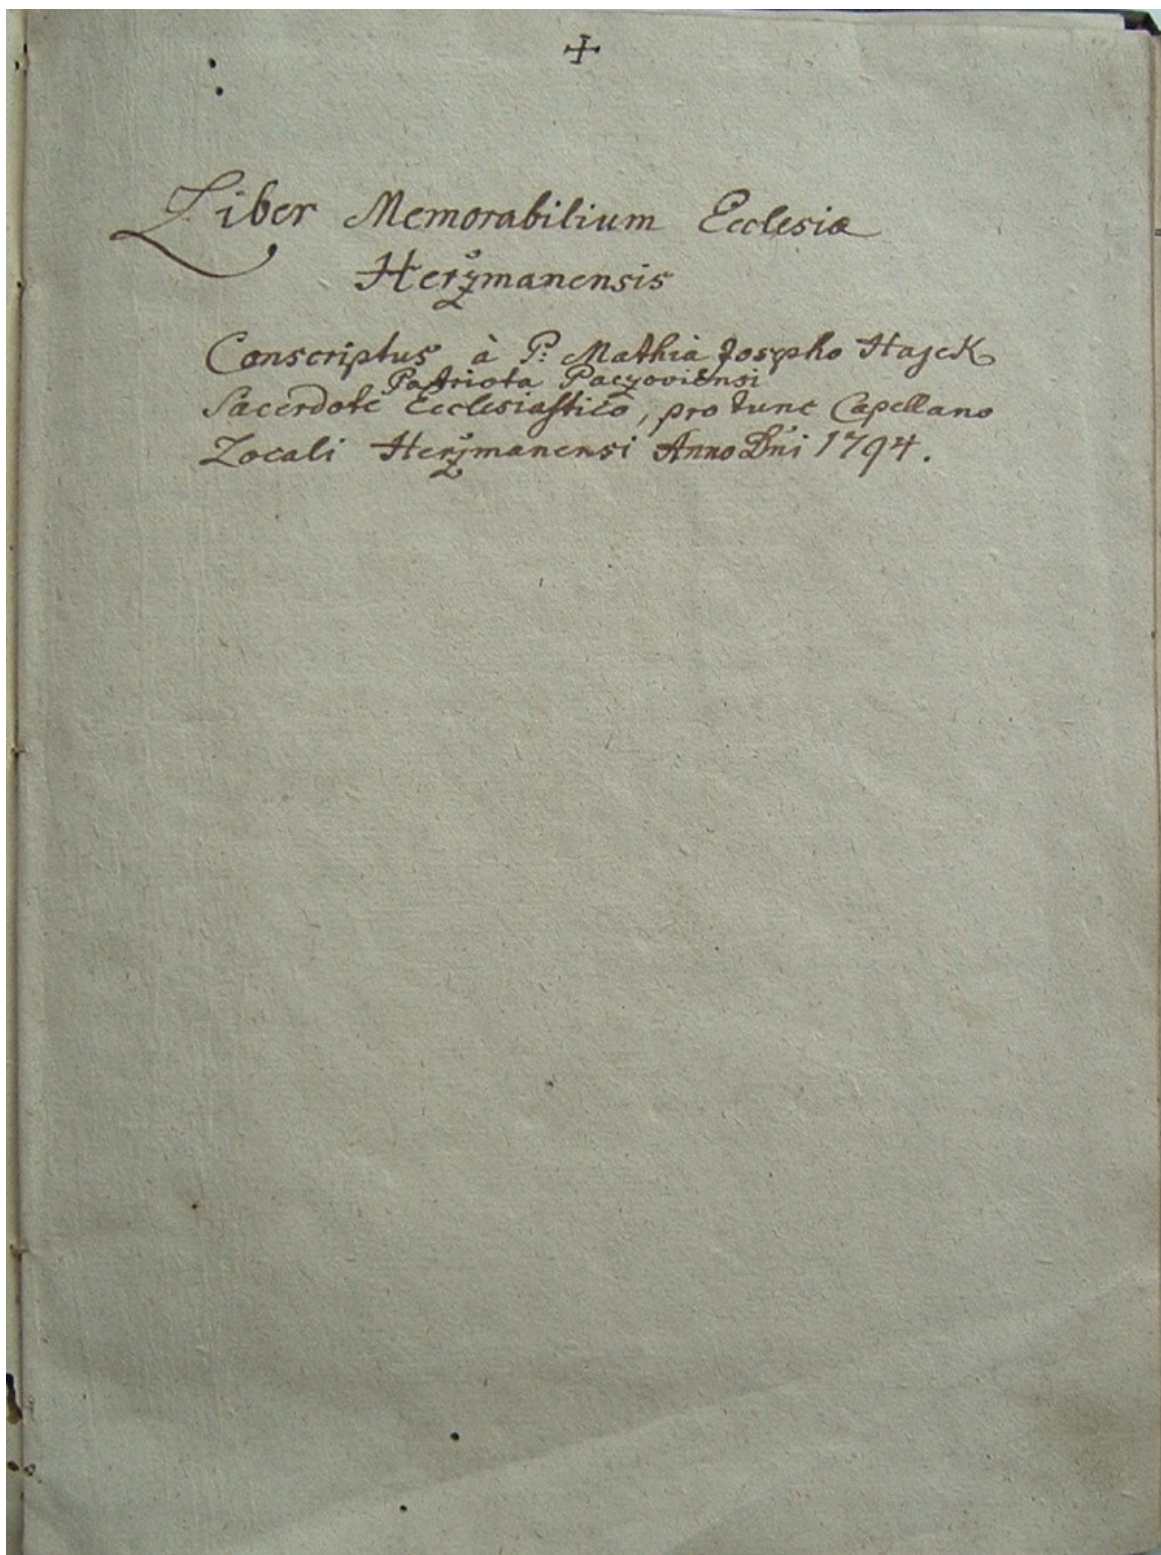 +
Liber Memorabilium Ecclesiæ
Heržmanensis
Conscriptus à P: Mathia Josepho Hajek
Patriota Paczoviensi
Sacerdote Ecclesiastico, pro tunc Capellano
Locali Heržmanensi Anno Dni 1794.